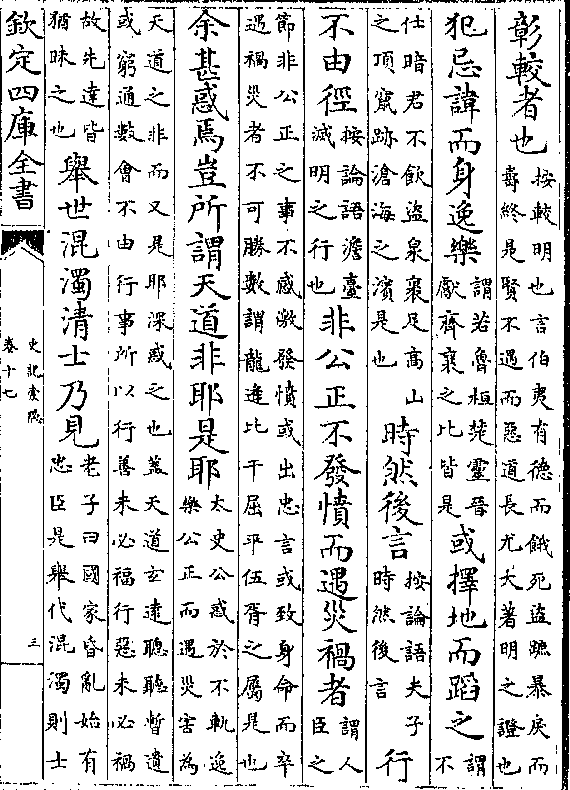 彰較者也按較明也言伯夷有德而餓死盜蹠暴戾而壽終是賢不遇而惡道長尤大著明之證也
犯忌諱而身逸樂謂若魯桓楚靈晉獻齊襄之比皆是或擇地而蹈之謂不
仕暗君不飲盜泉裹足高山之頂竄跡滄海之濱是也時然後言按論語夫子時然後言行
不由徑按論語澹臺滅明之行也非公正不發憤而遇災禍者謂人臣之
節非公正之事不感激發憤或出忠言或致身命而卒遇禍災者不可勝數謂龍逄比干屈平伍胥之屬是也
余甚惑焉豈所謂天道非耶是耶太史公惑於不軌逸樂公正而遇災害為
天道之非而又是耶深惑之也蓋天道玄遠聰聽暫遺或窮通數會不由行事所以行善未必福行惡未必禍
故先達皆猶昧之也舉世混濁清士乃見老子曰國家昏亂始有忠臣是舉代混濁則士
欽定四庫全書
史記索隱
卷十七
三